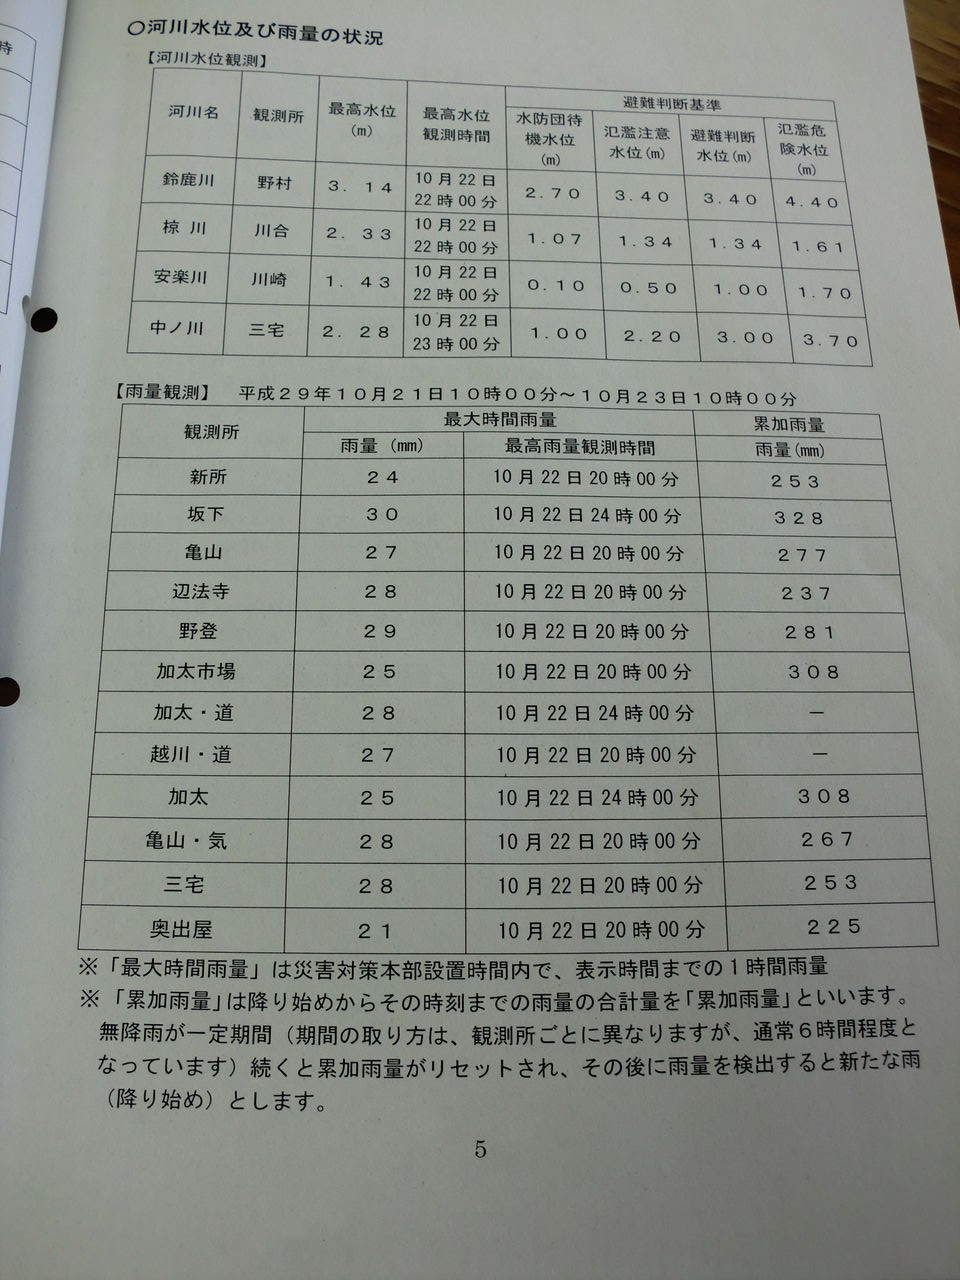 時
○河川水位及び雨量の状況
【河川水位観測】
河川名 観測所 最高水位(m) 最高水位観測時間 避難判断基準
水防団待機水位(m) 氾濫注意水位(m) 避難判断水位(m) 氾濫危険水位(m)
鈴鹿川 野村 3.14 10月22日22時00分 2.70 3.40 3.40 4.40
椋川 川合 2.33 10月22日22時00分 1.07 1.34 1.34 1.61
安楽川 川崎 1.43 10月22日22時00分 0.10 0.50 1.00 1.70
中ノ川 三宅 2.28 10月22日23時00分 1.00 2.20 3.00 3.70
【雨量観測】 平成29年10月21日10時00分～10月23日10時00分
観測所 最大時間雨量 累加雨量
雨量(mm) 最高雨量観測時間 雨量(mm)
新所 24 10月22日20時00分 253
坂下 30 10月22日24時00分 328
亀山 27 10月22日20時00分 277
辺法寺 28 10月22日20時00分 237
野登 29 10月22日20時00分 281
加太市場 25 10月22日20時00分 308
加太・道 28 10月22日24時00分 －
越川・道 27 10月22日20時00分 －
加太 25 10月22日24時00分 308
亀山・気 28 10月22日20時00分 267
三宅 28 10月22日20時00分 253
奥出屋 21 10月22日20時00分 225
※「最大時間雨量」は災害対策本部設置時間内で、表示時間までの1時間雨量
※「累加雨量」は降り始めからその時刻までの雨量の合計量を「累加雨量」といいます。
無降雨が一定期間（期間の取り方は、観測所ごとに異なりますが、通常6時間程度と
なっています）続くと累加雨量がリセットされ、その後に雨量を検出すると新たな雨
（降り始め）とします。
5